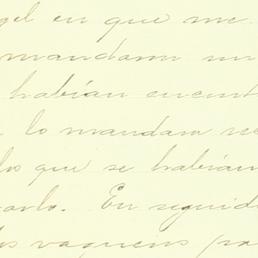 gel en que me
mandaron un
habían encont
lo mandara
los que se habían
arlo. En seguid
los vaqueros pa